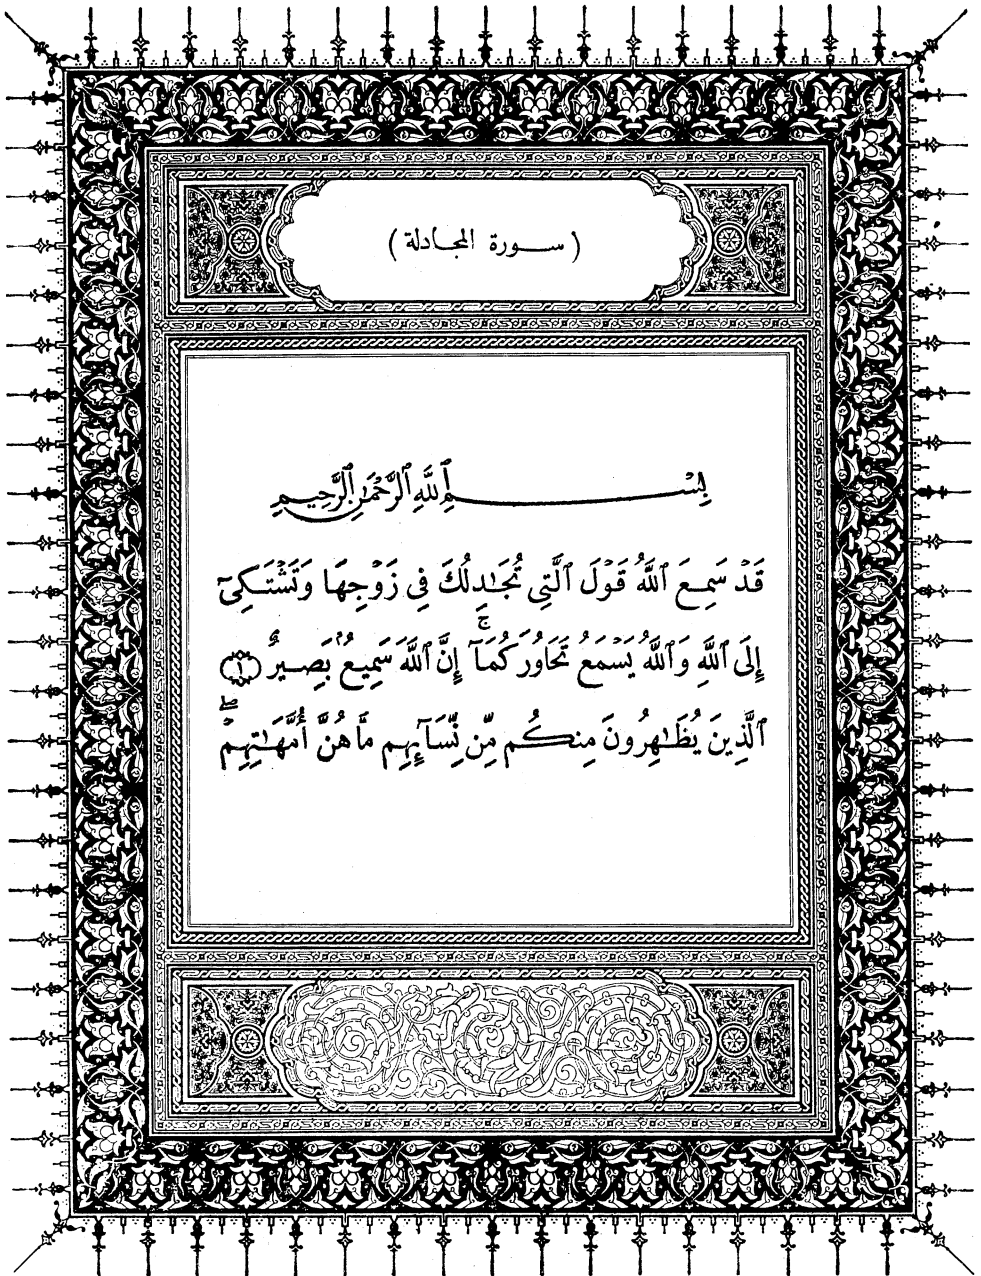 ( ســورة المجادلة )
بِسْــــــمِ ٱللَّهِ ٱلرَّحْمَٰنِ ٱلرَّحِيمِ
قَدْ سَمِعَ ٱللَّهُ قَوْلَ ٱلَّتِى تُجَٰدِلُكَ فِى زَوْجِهَا وَتَشْتَكِىٓ
إِلَى ٱللَّهِ وَٱللَّهُ يَسْمَعُ تَحَاوُرَكُمَآ ۚ إِنَّ ٱللَّهَ سَمِيعٌۢ بَصِيرٌ ١
ٱلَّذِينَ يُظَٰهِرُونَ مِنكُم مِّن نِّسَآئِهِم مَّا هُنَّ أُمَّهَٰتِهِمْ ۖ